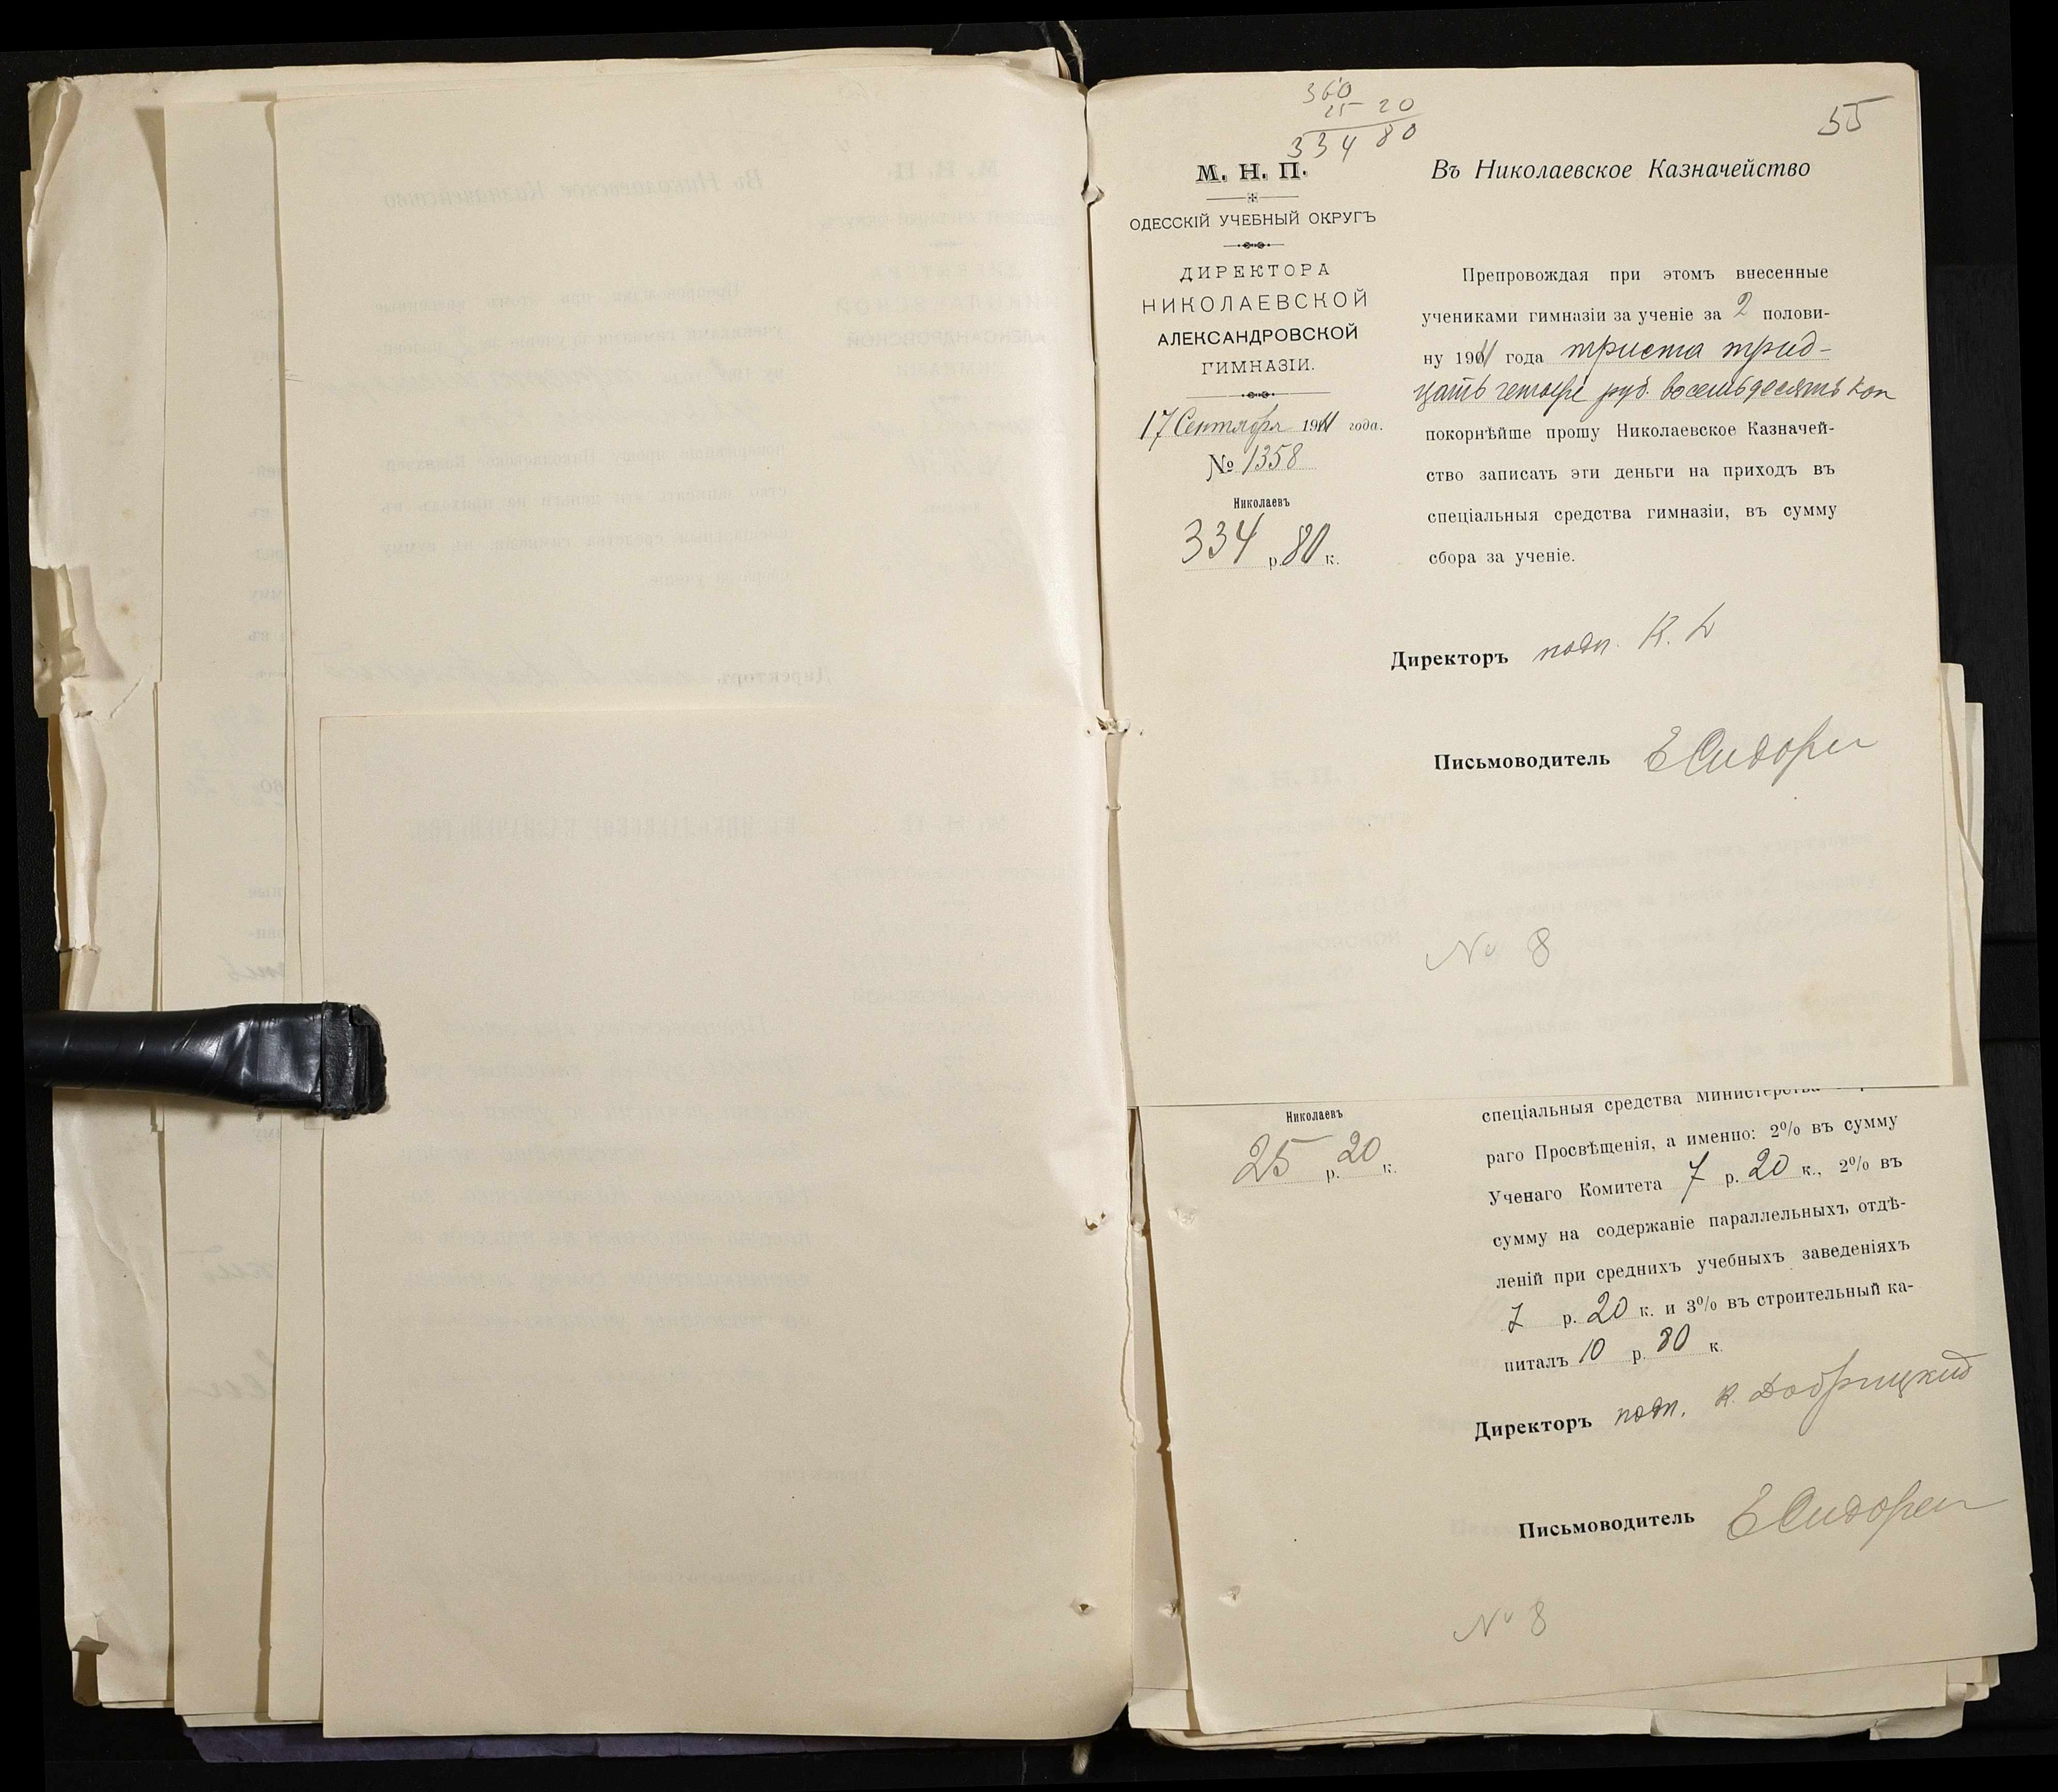 360
25 20
334 80
55
М. Н. П.
ОДЕССКІЙ УЧЕБНЫЙ ОКРУГЪ
ДИРЕКТОРА
НИКОЛАЕВСКОЙ
АЛЕКСАНДРОВСКОЙ
ГИМНАЗІИ.
17 Сентября 1911 года.
№ 1358
Николаевъ
334 р. 80 к.
Въ Николаевское Казначейство
Препровождая при этомъ внесенные
учениками гимназіи за ученіе за 2 полови-
ну 1911 года триста трид-
цать четыре руб. восемьдесятъ коп
покорнѣйше прошу Николаевское Казначей-
ство записать эти деньги на приходъ въ
спеціальныя средства гимназіи, въ сумму
сбора за ученіе.
Директоръ подп. К. Д
Письмоводитель Е Сидорен
№ 8
Николаевъ
25 р. 20 к.
спеціальныя средства Министерства
раго Просвѣщенія, а именно: 2% въ сумму
Ученаго Комитета 7 р. 20 к., 2% въ
сумму на содержаніе параллельныхъ отдѣ-
леній при среднихъ учебныхъ заведеніяхъ
7 р. 20 к. и 3% въ строительный ка-
питалъ 10 р. 80 к.
Директоръ подп. К. Добрицкій
Письмоводитель Е Сидорен
№ 8